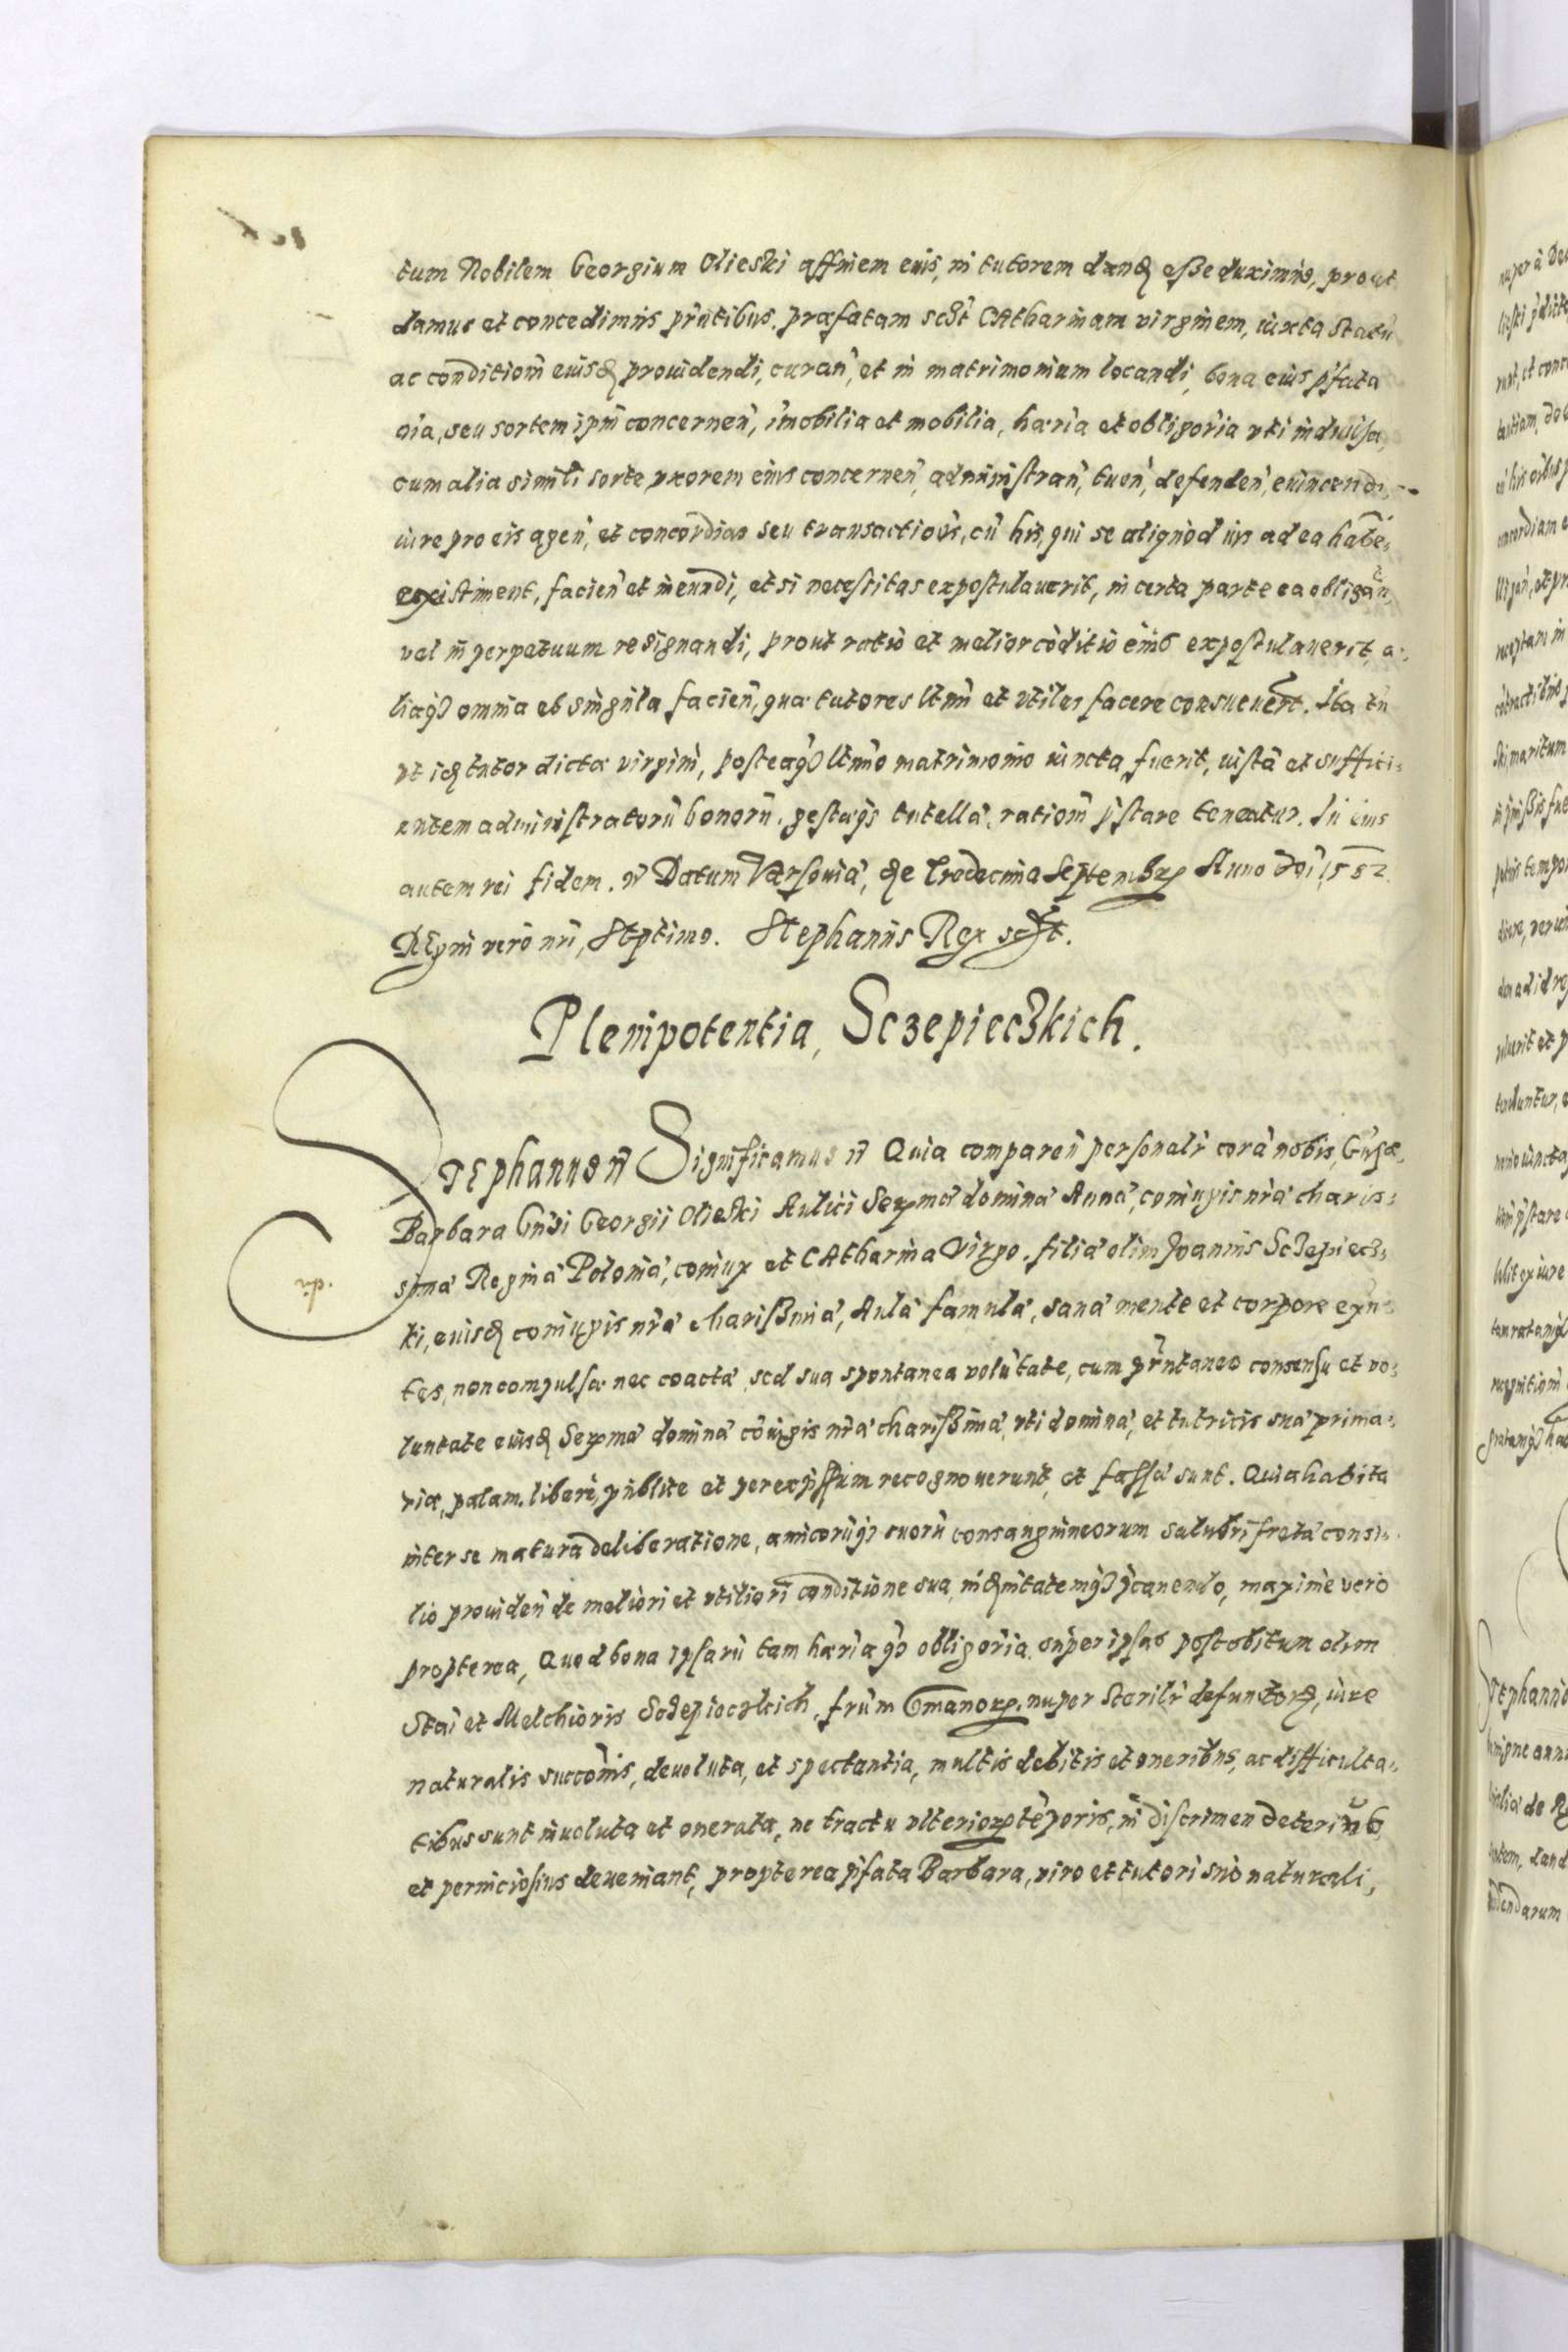 tum Nobilem Georgium Olieski affinem eius, in tutorem dandū esse duximus, prout
damus et concedimus pn̄tibus. præfatam sclt̄ CAtharinam virginem, iuxta statū
ac conditiom̄ eiusdē prouidendi, curan̄, et in matrimonium locandi, bona eius p̄fata
oīa, seu sortem ipm̄ concernen̄, īmobilia et mobilia, hæria et obligōria vti indiuisa,
cum alia simili sorte vxorem eius concernen̄, administran̄, tuen̄, defenden̄, euincendi,
iure pro eis agen̄, et concordias seu transactiōs, cū his, qui se aliquod ius ad ea habē,
existiment, facien̄ et ineundi, et si necessitas expostulauerit, in certa parte ea obligan̄,
vel in perpetuum resignandi, prout ratio et melior cōditio eius expostulauerit, a,
liaqȝ omnia et singula facien̄, quæ tutores ltm̄i et vtiles facere consueuerūt. Ita tn̄
vt idē tutor dictæ virgini, posteaqȝ ltm̄o matrimonio iuncta fuerit, iustā et suffici,
entem administratorū bonorū, gestæqȝ tutellæ, ratiom̄ p̄stare teneatur. In cuius
autem rei fidem. n̄ Datum Varsouiæ, die Tredecima Septembrꝭ Anno dn̄i 1582
REgni vero nr̄i, Septimo. Stephanus Rex sczt.
Plenipotentia, Sczepieczkich.
STEphannus n̄ Significamus n̄ Quia comparen̄ personalr̄ corā nobis, Gn̄sæ,
Barbara Gn̄si Georgii Olieski Aulici Serꝫmæ dominæ Annæ, coniugis nr̄æ charis,
simæ Reginæ Poloniæ, coniux et CAtharina Virgo. filiæ olim Joannis Sczepiecz,
ki, eiusdē coniugis nr̄æ charissimæ, Aulæ famulæ, sanæ mente et corpore exn̄
tes, non compulsæ nec coactæ, sed sua spontanea volūtate, cum pr̄ntaneo consensu et vo,
luntate eiusdē Serꝫmæ dominæ cōiugis nr̄æ charissimæ, vti dominæ, et tutricis suæ prima,
riæ, palam. libere, publice et per expressum recognouerunt, et fassæ sunt. Quia habita
inter se matura deliberatione, amicorūqȝ suorū consanguineorum salubri fretæ consi,
lio prouiden̄ de meliori et vtiliori conditione sua, indēnitatemqȝ p̄cauendo, maxime vero
propterea, Quod bona ipsarū tam hæria qȝ obligōria, super ipsas post obitum olim
Stai et Melchioris Sczepieczkich, frūm Germanorꝫ, nuper sterilr̄ defunctorꝫ, iure
naturalis succōnis, deuoluta, et spectantia, multis debitis et oneribus, ac difficulta,
tibus sunt inuoluta et onerata, ne tractu vlteriorꝭ tēporis, in discrimen deterius
et perniciosius deueniant, propterea p̄fata Barbara, viro et tutori suo naturali,